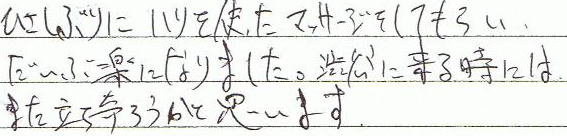 ひさしぶりにハリを使ったマッサージをしてもらい、
だいぶ楽になりました。渋谷に来る時には、
また立ち寄ろうかと思います。